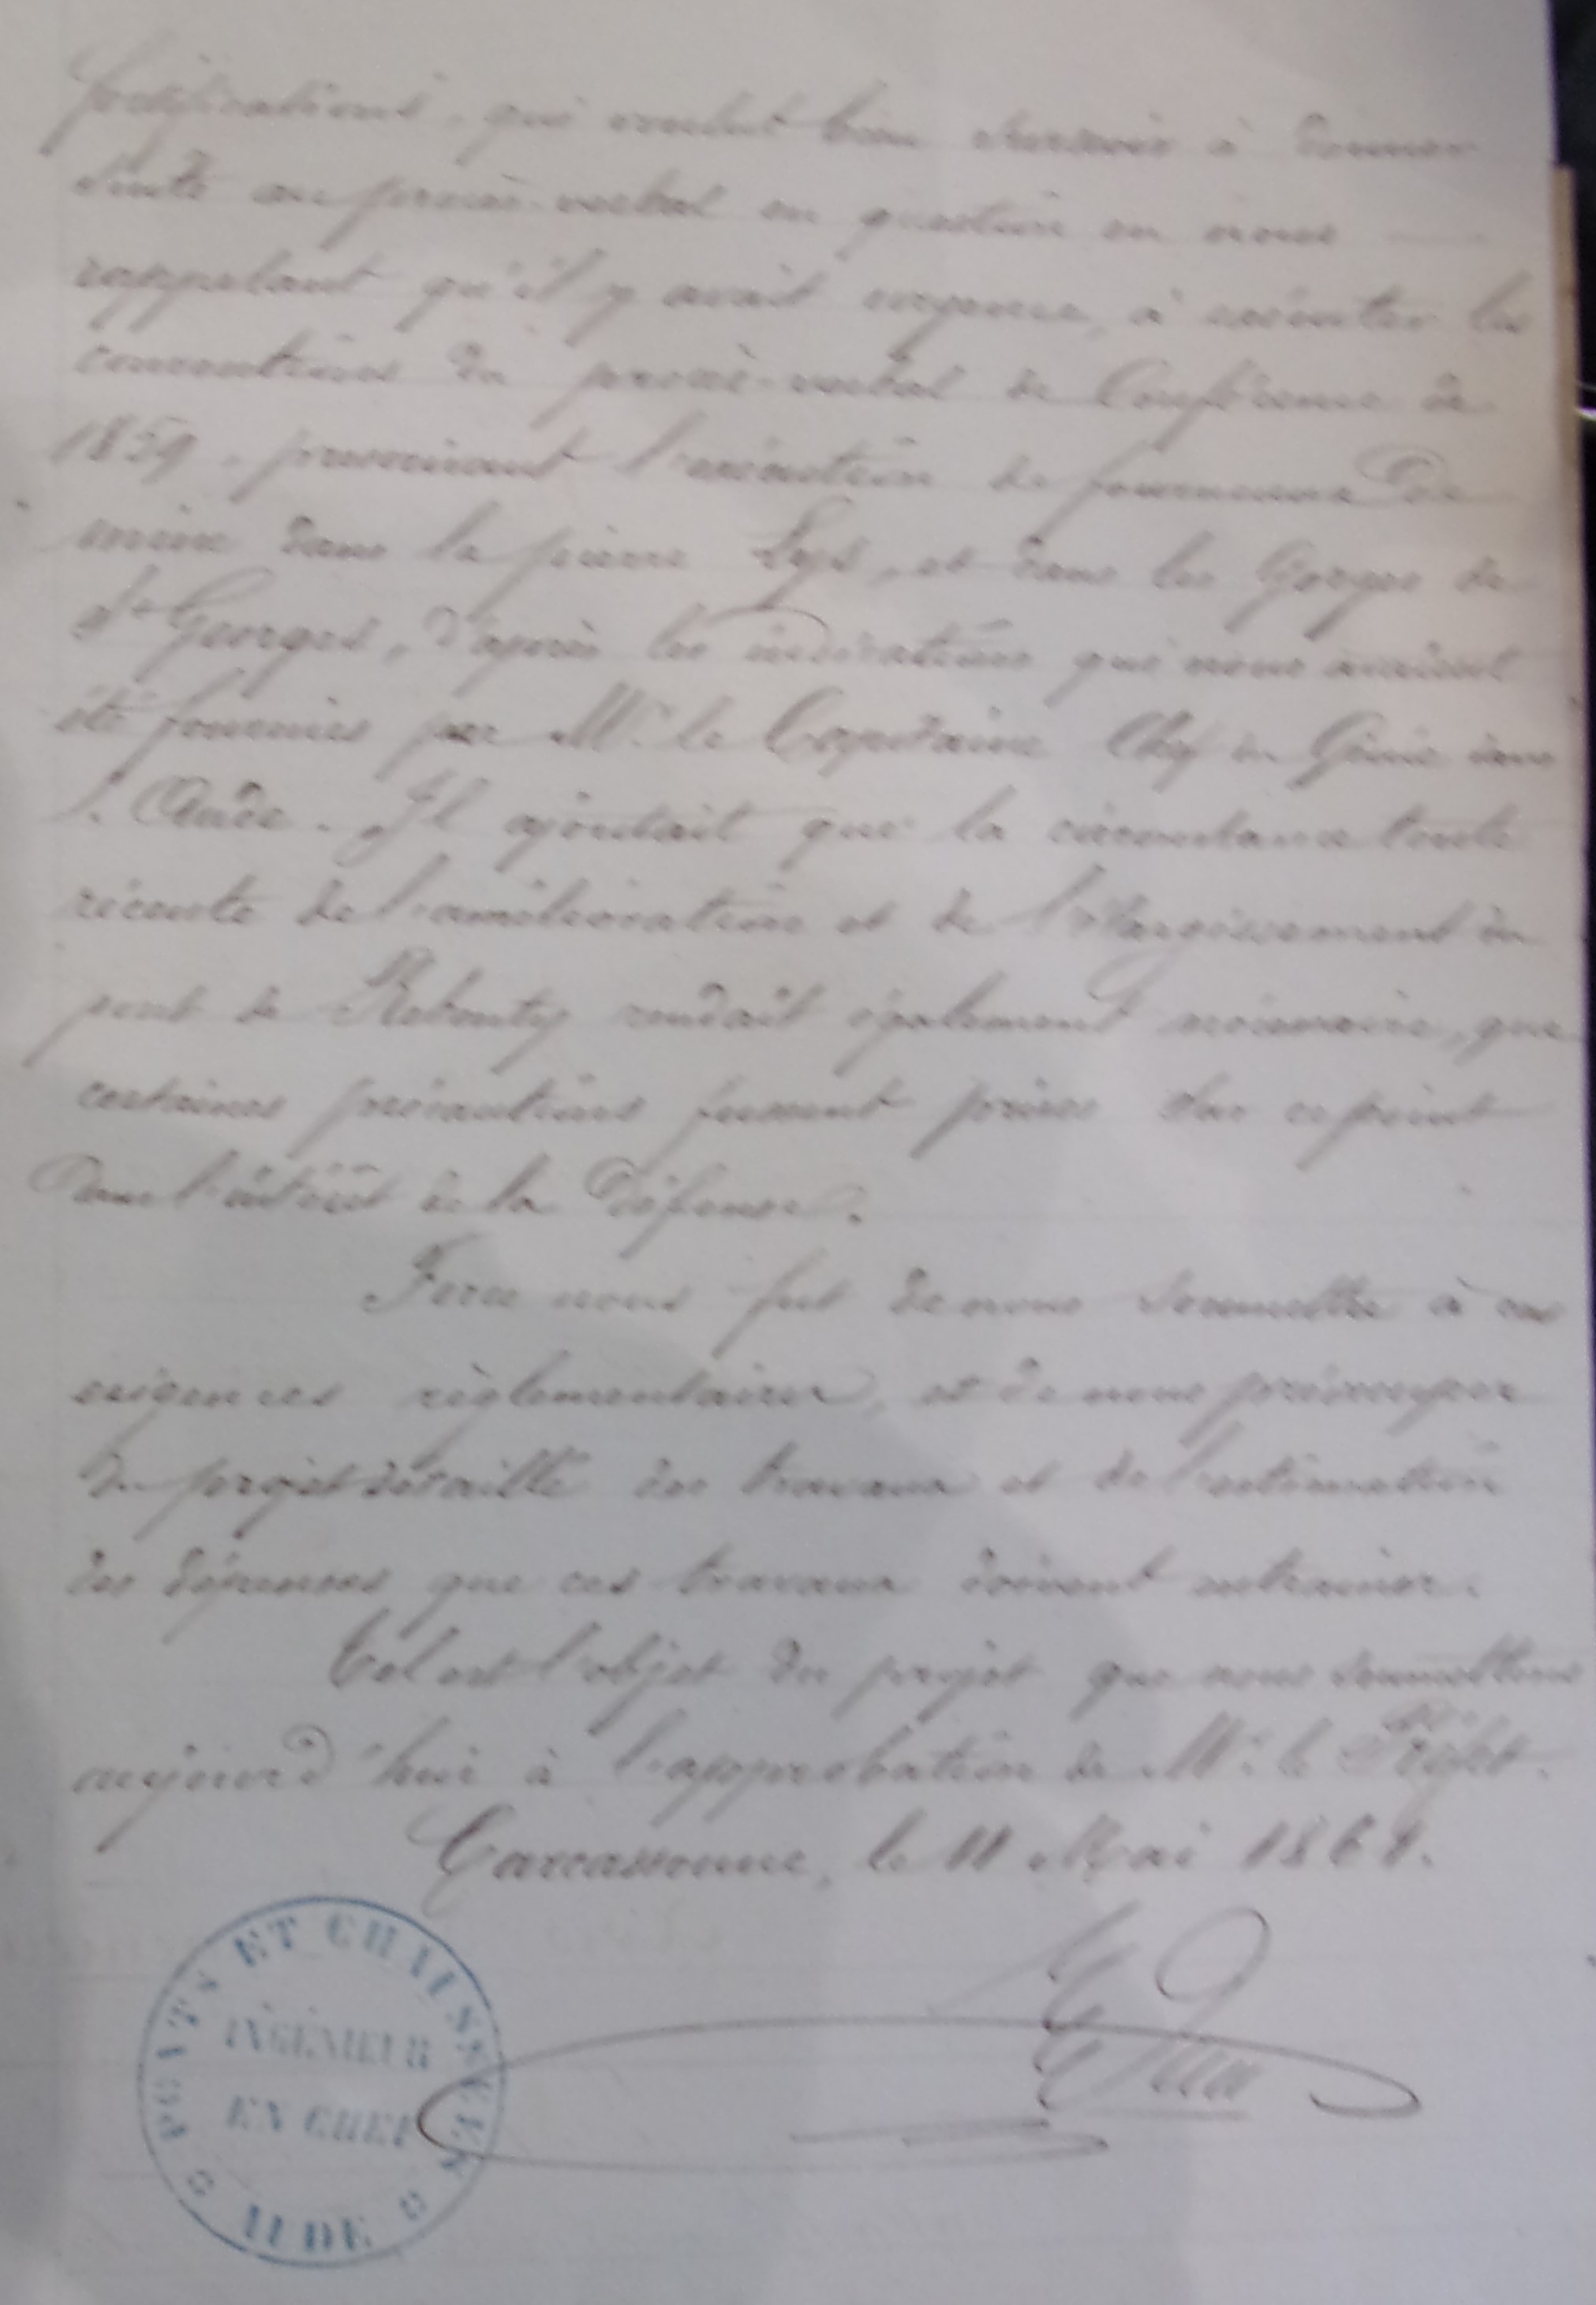 fortifications, qui voulut bien surseoir à donner
suite au procès-verbal en question en nous
rappelant qu'il y avait urgence, à exécuter les
conventions du procès-verbal de Conférence de
1859, prescrivant l'exécution de fourneaux de
mine dans la pierre Lys, et dans les Gorges de
St Georges, d'après les indications que nous avaient
été fournies par Mr. le Capitaine Chef du Génie dans
l'Aude. Il ajoutait que la circonstance toute
récente de l'amélioration et de l'élargissement du
pont de Rebenty rendait également nécessaire, que
certaines précautions fussent prises sur ce point
dans l'intérêt de la défense.
Force nous fut de nous soumettre à ces
exigences règlementaires, et de nous préoccuper
du projet détaillé des travaux et de l'estimation
des dépenses que ces travaux doivent entrainer.
Tel est l'objet du projet que nous soumettons
aujourd'hui à l'approbation de Mr. le Préfet.
Carcassonne, le 11 Mai 1861.
PONTS ET CHAUSSÉES
INGÉNIEUR
EN CHEF
AUDE